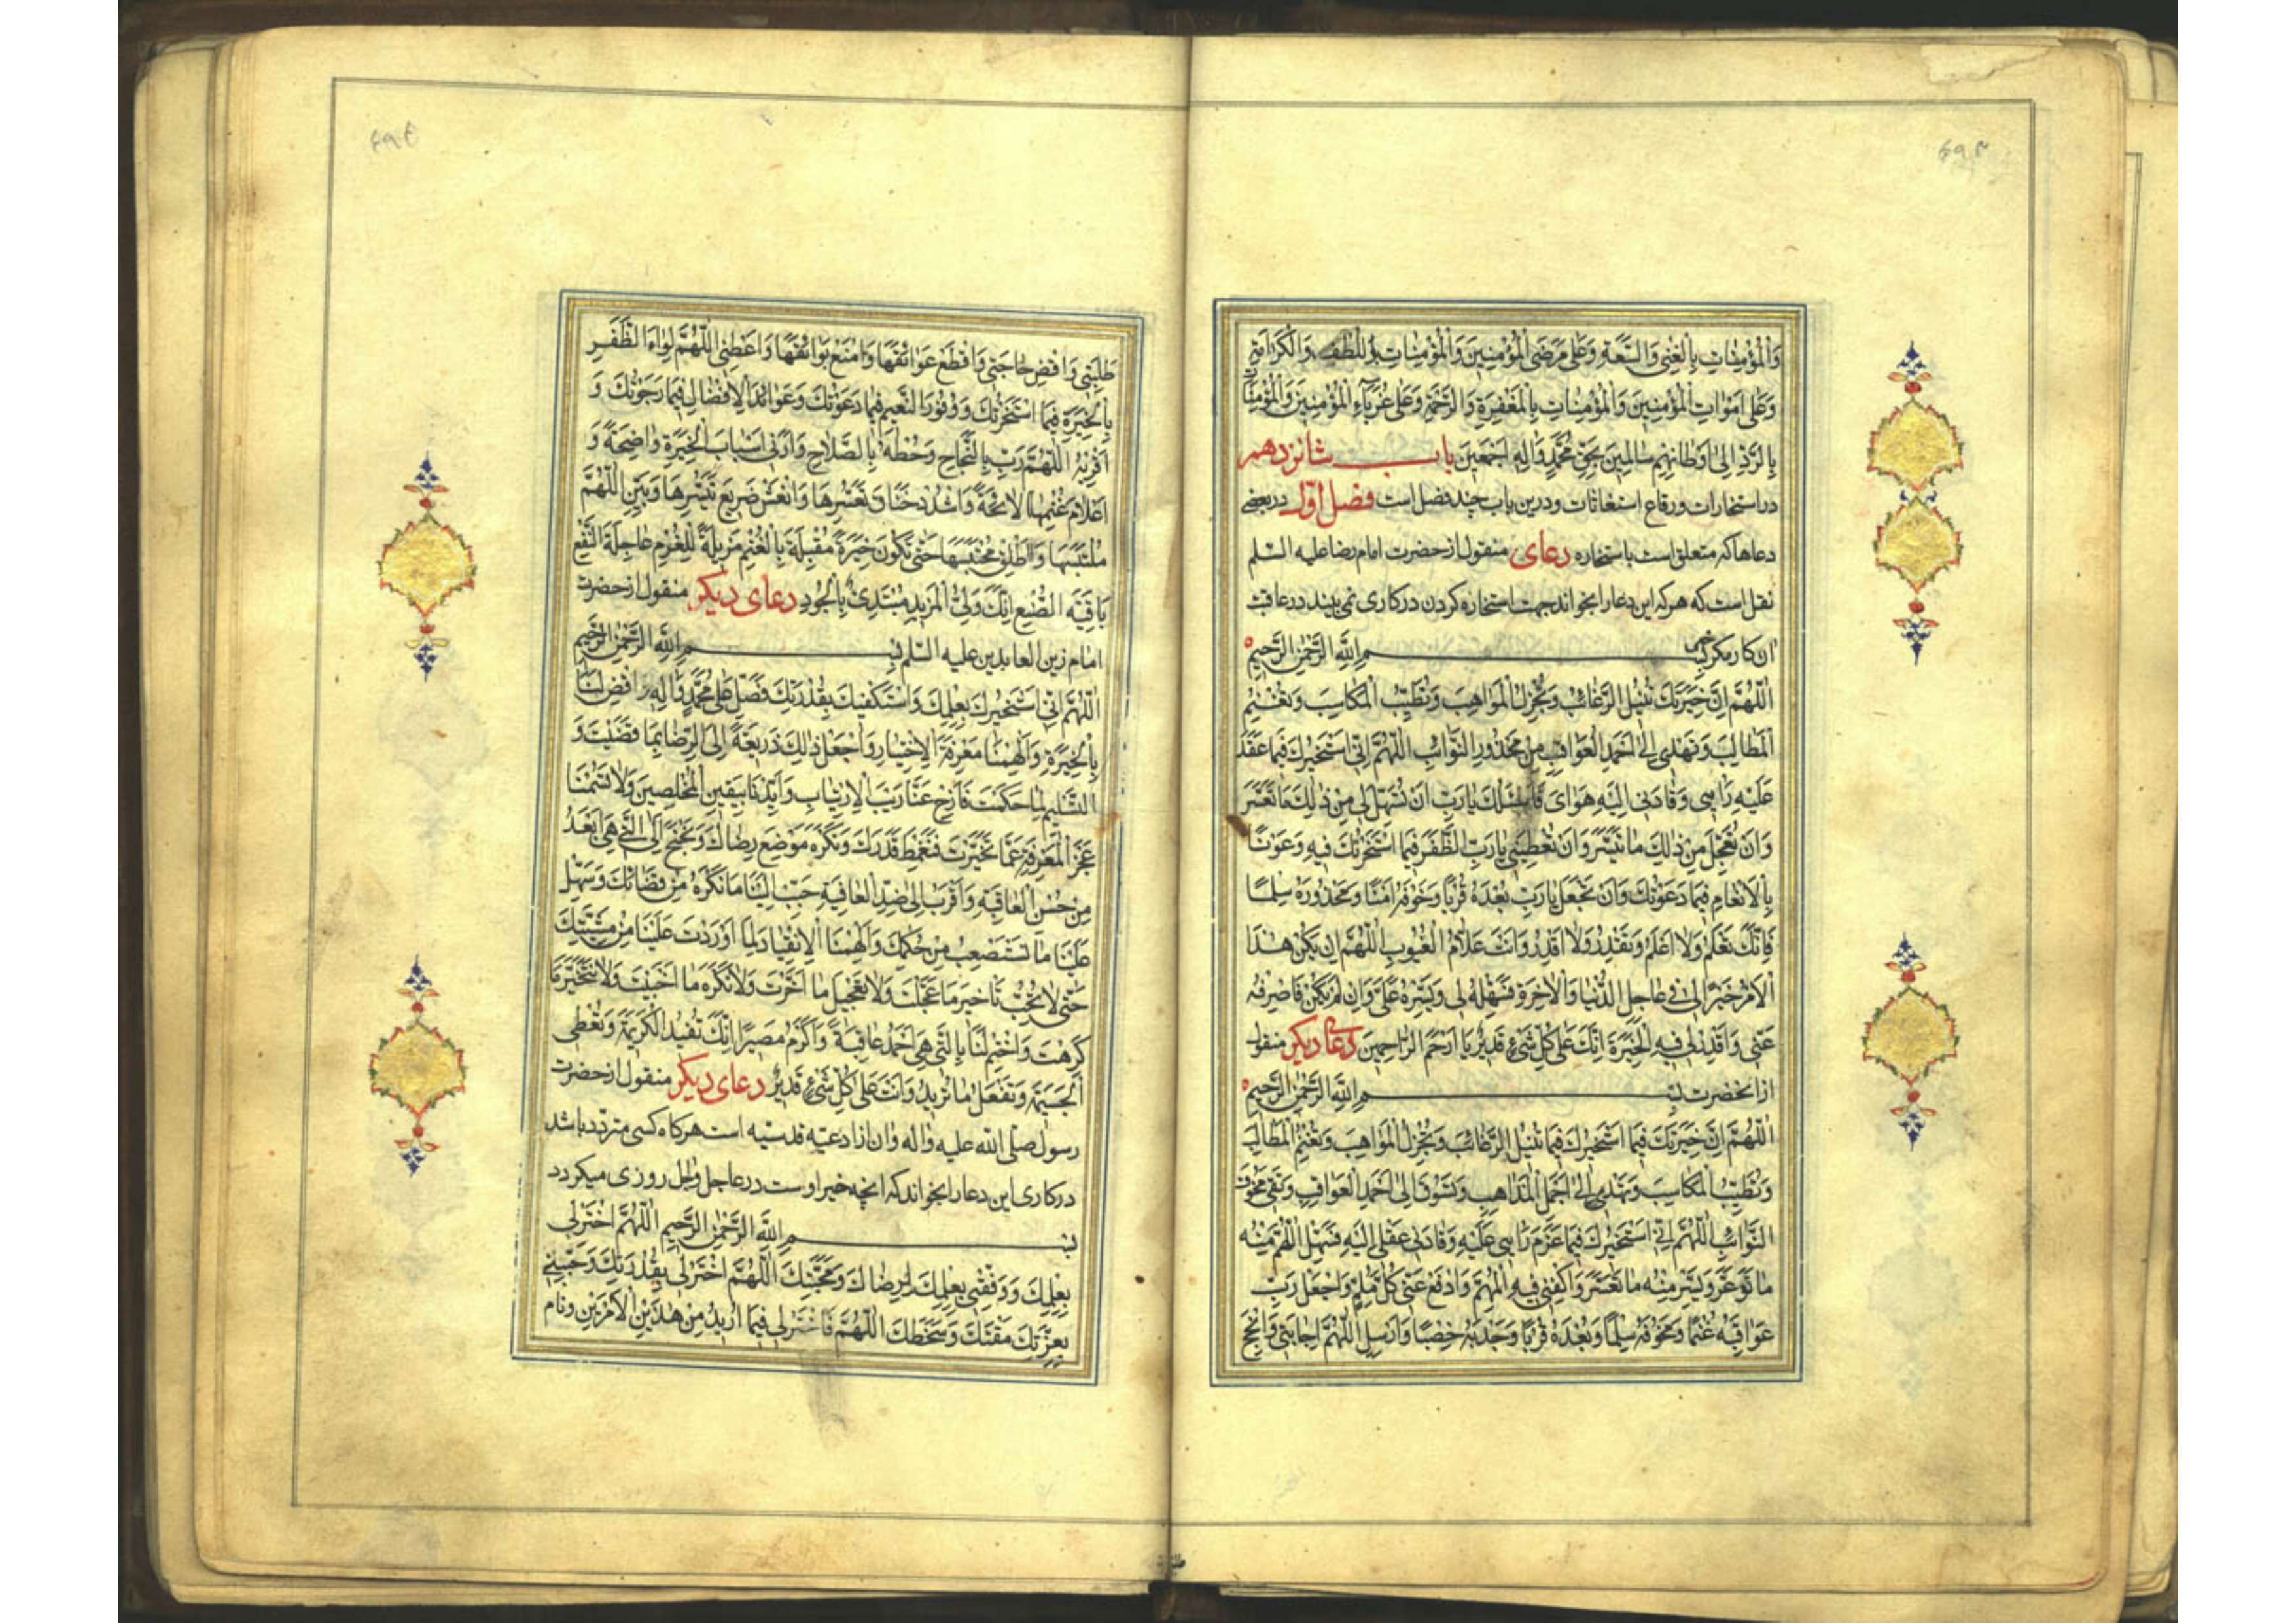 ۴۹۳
وَالْمُؤْمِنَاتِ بِالْغِنَى وَالسَّعَةِ وَعَلَى مَرْضَى الْمُؤْمِنِينَ وَالْمُؤْمِنَاتِ بِاللُّطْفِ وَالْكَرَامَةِ
وَعَلَى اَمْوَاتِ الْمُؤْمِنِينَ وَالْمُؤْمِنَاتِ بِالْمَغْفِرَةِ وَالرَّحْمَةِ وَعَلَى غُرَبَاءِ الْمُؤْمِنِينَ وَالْمُؤْمِنَاتِ
بِالرَّدِّ اِلَى اَوْطَانِهِمْ سَالِمِينَ بِحَقِّ مُحَمَّدٍ وَآلِهِ اَجْمَعِينَ باب شانزدهم
در استخارات ورقاع استغاثات ودرین باب چند فصل است فصل اول در بعضی
دعاها که متعلق است باستخاره دعای منقول از حضرت امام رضا علیه السلم
نقل است که هر که این دعا را بخواند جهت استخاره کردن در کاری نمی بیند در عاقبت
ان کار مکر خیر بِسْمِ اللَّهِ الرَّحْمٰنِ الرَّحِيمِ
اَللّٰهُمَّ اِنَّ خِيَرَتَكَ تُنِيلُ الرَّغَائِبَ وَتُجْزِلُ الْمَوَاهِبَ وَتُطَيِّبُ الْمَكَاسِبَ وَتُغْنِمُ
الْمَطَالِبَ وَتَهْدِي اِلَى اَحْمَدِ الْعَوَاقِبِ مِنْ مَحْذُورِ النَّوَائِبِ اَللّٰهُمَّ اِنِّي اَسْتَخِيرُكَ فِيمَا عَقَدَ
عَلَيْهِ رَاْيِي وَقَادَنِي اِلَيْهِ هَوَايَ فَاَسْئَلُكَ يَا رَبِّ اَنْ تُسَهِّلَ لِي مِنْ ذٰلِكَ مَا تَعَسَّرَ
وَاَنْ تُعَجِّلَ مِنْ ذٰلِكَ مَا تَيَسَّرَ وَاَنْ تُعْطِيَنِي يَا رَبِّ الظَّفَرَ فِيمَا اسْتَخَرْتُكَ فِيهِ وَعَوْنًا
بِالْاِنْعَامِ فِيمَا دَعَوْتُكَ وَاَنْ تَجْعَلَ يَا رَبِّ بُعْدَهُ قُرْبًا وَخَوْفَهُ اَمْنًا وَمَحْذُورَهُ سِلْمًا
فَاِنَّكَ تَعْلَمُ وَلَا اَعْلَمُ وَتَقْدِرُ وَلَا اَقْدِرُ وَاَنْتَ عَلَّامُ الْغُيُوبِ اَللّٰهُمَّ اِنْ يَكُنْ هٰذَا
الْاَمْرُ خَيْرًا لِي فِي عَاجِلِ الدُّنْيَا وَالْاٰخِرَةِ فَسَهِّلْهُ لِي وَيَسِّرْهُ عَلَيَّ وَاِنْ لَمْ يَكُنْ فَاصْرِفْهُ
عَنِّي وَاقْدِرْ لِي فِيهِ الْخِيَرَةَ اِنَّكَ عَلَى كُلِّ شَيْءٍ قَدِيرٌ يَا اَرْحَمَ الرَّاحِمِينَ دعای دیکر منقول
از انحضرت بِسْمِ اللَّهِ الرَّحْمٰنِ الرَّحِيمِ
اَللّٰهُمَّ اِنَّ خِيَرَتَكَ فِيمَا اَسْتَخِيرُكَ فِيمَا تُنِيلُ الرَّغَائِبَ وَتُجْزِلُ الْمَوَاهِبَ وَتُغْنِمُ الْمَطَالِبَ
وَتُطَيِّبُ الْمَكَاسِبَ وَتَهْدِي اِلَى اَجْمَلِ الْمَذَاهِبِ وَتَسُوقُ اِلَى اَحْمَدِ الْعَوَاقِبِ وَتَقِي مَخُوفَ
النَّوَائِبِ اَللّٰهُمَّ اِنِّي اَسْتَخِيرُكَ فِيمَا عَزَمَ رَاْيِي عَلَيْهِ وَقَادَنِي عَقْلِي اِلَيْهِ فَسَهِّلِ اللّٰهُمَّ مِنْهُ
مَا تَوَعَّرَ وَيَسِّرْ مِنْهُ مَا تَعَسَّرَ وَاكْفِنِي فِيهِ الْمُهِمَّ وَادْفَعْ عَنِّي كُلَّ مُلِمٍّ وَاجْعَلْ رَبِّ
عَوَاقِبَهُ غُنْمًا وَمَخُوفَهُ سِلْمًا وَبُعْدَهُ قُرْبًا وَجَدْبَهُ خِصْبًا وَاَرْسِلِ اللّٰهُمَّ اِجَابَتِي وَاَنْجِحْ
۴۹۴
طَلِبَتِي وَاقْضِ حَاجَتِي وَاقْطَعْ عَوَائِقَهَا وَامْنَعْ بَوَائِقَهَا وَاَعْطِنِي اللّٰهُمَّ لِوَاءَ الظَّفَرِ
بِالْخِيَرَةِ فِيمَا اسْتَخَرْتُكَ وَوُفُورَ النَّعِيمِ فِيمَا دَعَوْتُكَ وَعَوَائِدَ الْاِفْضَالِ فِيمَا رَجَوْتُكَ وَ
اَقْرِنْهُ اللّٰهُمَّ رَبِّ بِالنَّجَاحِ وَحُطْهُ بِالصَّلَاحِ وَاَرِنِي اَسْبَابَ الْخِيَرَةِ وَاضِحَةً وَ
اَعْلَامَ غُنْمِهَا لَائِحَةً وَاشْدُدْ خِنَاقَ تَعَسُّرِهَا وَانْعَشْ صَرِيعَ تَيَسُّرِهَا وَبَيِّنِ اللّٰهُمَّ
مُلْتَبَسَهَا وَاَطْلِقْ مُحْتَبَسَهَا حَتّٰى تَكُونَ خِيَرَةً مُقْبِلَةً بِالْغُنْمِ مُزِيلَةً لِلْغُرْمِ عَاجِلَةَ النَّفْعِ
بَاقِيَةَ الصُّنْعِ اِنَّكَ وَلِيُّ الْمَزِيدِ مُبْتَدِئٌ بِالْجُودِ دعای دیکر منقول از حضرت
امام زین العابدین علیه السلم بِسْمِ اللَّهِ الرَّحْمٰنِ الرَّحِيمِ
اَللّٰهُمَّ اِنِّي اَسْتَخِيرُكَ بِعِلْمِكَ وَاَسْتَكْفِيكَ بِقُدْرَتِكَ فَصَلِّ عَلَى مُحَمَّدٍ وَآلِهِ وَاقْضِ لَنَا
بِالْخِيَرَةِ وَاَلْهِمْنَا مَعْرِفَةَ الْاِخْتِيَارِ وَاجْعَلْ ذٰلِكَ ذَرِيعَةً اِلَى الرِّضَا بِمَا قَضَيْتَ وَ
التَّسْلِيمِ لِمَا حَكَمْتَ فَاَزِحْ عَنَّا رَيْبَ الْاِرْتِيَابِ وَاَيِّدْنَا بِيَقِينِ الْمُخْلِصِينَ وَلَا تَسُمْنَا
عَجْزَ الْمَعْرِفَةِ عَمَّا تَخَيَّرْتَ فَنَغْمِطَ قَدْرَكَ وَنَكْرَهَ مَوْضِعَ رِضَاكَ وَنَجْنَحَ اِلَى الَّتِي هِيَ اَبْعَدُ
مِنْ حُسْنِ الْعَاقِبَةِ وَاَقْرَبُ اِلَى ضِدِّ الْعَافِيَةِ حَبِّبْ اِلَيْنَا مَا نَكْرَهُ مِنْ قَضَائِكَ وَسَهِّلْ
عَلَيْنَا مَا نَسْتَصْعِبُ مِنْ حُكْمِكَ وَاَلْهِمْنَا الْاِنْقِيَادَ لِمَا اَوْرَدْتَ عَلَيْنَا مِنْ مَشِيَّتِكَ
حَتّٰى لَا نُحِبَّ تَاْخِيرَ مَا عَجَّلْتَ وَلَا تَعْجِيلَ مَا اَخَّرْتَ وَلَا نَكْرَهَ مَا اَحْبَبْتَ وَلَا نَتَخَيَّرَ مَا
كَرِهْتَ وَاخْتِمْ لَنَا بِالَّتِي هِيَ اَحْمَدُ عَاقِبَةً وَاَكْرَمُ مَصِيرًا اِنَّكَ تُفِيدُ الْكَرِيمَةَ وَتُعْطِي
الْجَسِيمَةَ وَتَفْعَلُ مَا تُرِيدُ وَاَنْتَ عَلَى كُلِّ شَيْءٍ قَدِيرٌ دعای دیکر منقول از حضرت
رسول صلی الله علیه واله وان از ادعیه قدسیه است هرکاه کسی متردد باشد
در کاری این دعا را بخواند که انچه خیر اوست در عاجل واجل روزی میکردد
بِسْمِ اللَّهِ الرَّحْمٰنِ الرَّحِيمِ اَللّٰهُمَّ اخْتَرْ لِي
بِعِلْمِكَ وَوَفِّقْنِي بِعِلْمِكَ لِرِضَاكَ وَمَحَبَّتِكَ اَللّٰهُمَّ اخْتَرْ لِي بِقُدْرَتِكَ وَجَنِّبْنِي
بِعِزَّتِكَ مَقْتَكَ وَسَخَطَكَ اَللّٰهُمَّ فَاخْتَرْ لِي فِيمَا اُرِيدُ مِنْ هٰذَيْنِ الْاَمْرَيْنِ ونام